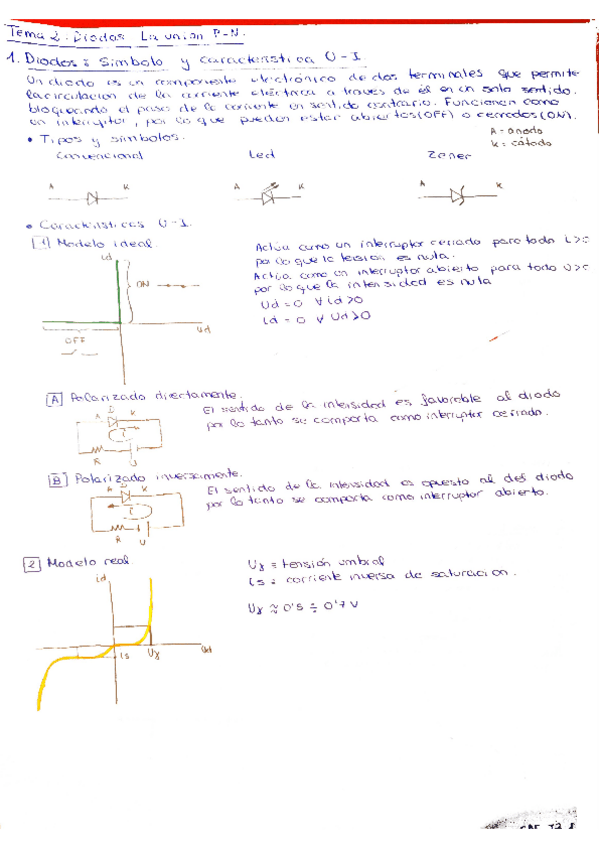 Tema 2: Diodos. La unión P-N.
1. Diodos: Símbolo y característica U-I.
Un diodo es un componente electrónico de dos terminales que permite
la circulación de la corriente eléctrica a través de él en un solo sentido.
bloqueando el paso de la corriente en sentido contrario. Funcionan como
un interruptor, por lo que pueden estar abiertos(OFF) o cerrados(ON).
• Tipos y símbolos.
A = ánodo
K = cátodo
Convencional Led Zener
A K A K A K
• Características U-I.
1 Modelo ideal.
id
ON
Ud
OFF
Actúa como un interruptor cerrado para todo i>0
por lo que la tensión es nula.
Actúa como un interruptor abierto para todo U>0
por lo que la intensidad es nula
Ud = 0 ∀ id >0
id = 0 ∀ Ud >0
A Polarizado directamente.
A D K
I
R U
El sentido de la intensidad es favorable al diodo
por lo tanto se comporta como interruptor cerrado.
B Polarizado inversamente.
A D K
R U
El sentido de la intensidad es opuesto al del diodo
por lo tanto se comporta como interruptor abierto.
2 Modelo real
id
is Uγ Ud
Uγ = tensión umbral
is = corriente inversa de saturación.
Uγ ≈ 0'5 ÷ 0'7 V